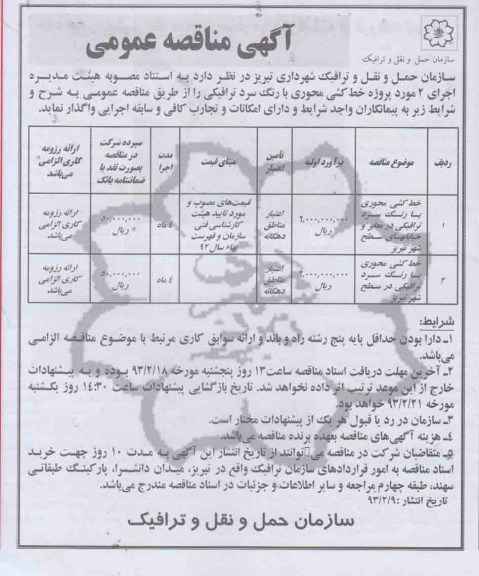 آگهی مناقصه عمومی
سازمان حمل و نقل و ترافیک
سازمان حمل و نقل و ترافیک شهرداری تبریز در نظر دارد به استناد مصوبه هیئت مدیره
اجرای ۲ مورد پروژه خط کشی محوری با رنگ سرد ترافیکی را از طریق مناقصه عمومی به شرح و
شرایط زیر به پیمانکاران واجد شرایط و دارای امکانات و تجارب کافی و سابقه اجرایی واگذار نماید.
ردیف
موضوع مناقصه
برآورد اولیه
تأمین اعتبار
مبنای قیمت
مدت اجرا
سپرده شرکت در مناقصه بصورت نقد یا ضمانتنامه بانک
ارائه رزومه کاری الزامی میباشد
۱
خط کشی محوری
با رنگ سرد
ترافیکی در معابر و
خیابانهای سطح
شهر تبریز
ریال
اعتبار مناطق دهگانه
قیمت‌های مصوب و
مورد تایید هیئت
کارشناسی فنی
سازمان و فهرست
بهاء سال ۹۲
ماه
ریال
ارائه رزومه کاری الزامی می‌باشد
۲
خط کشی محوری
با رنگ سرد
ترافیکی در سطح
شهر تبریز
ریال
اعتبار مناطق دهگانه
۴ ماه
ریال
ارائه رزومه کاری الزامی می‌باشد
شرایط:
۱ـ دارا بودن حداقل پایه پنج رشته راه و باند و ارائه سوابق کاری مرتبط با موضوع مناقصه الزامی
می‌باشد.
۲ـ آخرین مهلت دریافت اسناد مناقصه ساعت ۱۳ روز پنجشنبه مورخه ۹۳/۲/۱۸ بوده و به پیشنهادات
خارج از این موعد ترتیب اثر داده نخواهد شد. تاریخ بازگشایی پیشنهادات ساعت ۱۴:۳۰ روز یکشنبه
مورخه ۹۳/۲/۲۱ خواهد بود.
۳ـ سازمان در رد یا قبول هر یک از پیشنهادات مختار است.
۴ـ هزینه آگهی‌های مناقصه بعهده برنده مناقصه می‌باشد.
۵ـ متقاضیان شرکت در مناقصه می‌توانند از تاریخ انتشار این آگهی به مدت ۱۰ روز جهت خرید
اسناد مناقصه به امور قراردادهای سازمان ترافیک واقع در تبریز، میدان دانشسرا، پارکینگ طبقاتی
سهند، طبقه چهارم مراجعه و سایر اطلاعات و جزئیات در اسناد مناقصه مندرج می‌باشد.
تاریخ انتشار: ۹۳/۲/۹
سازمان حمل و نقل و ترافیک